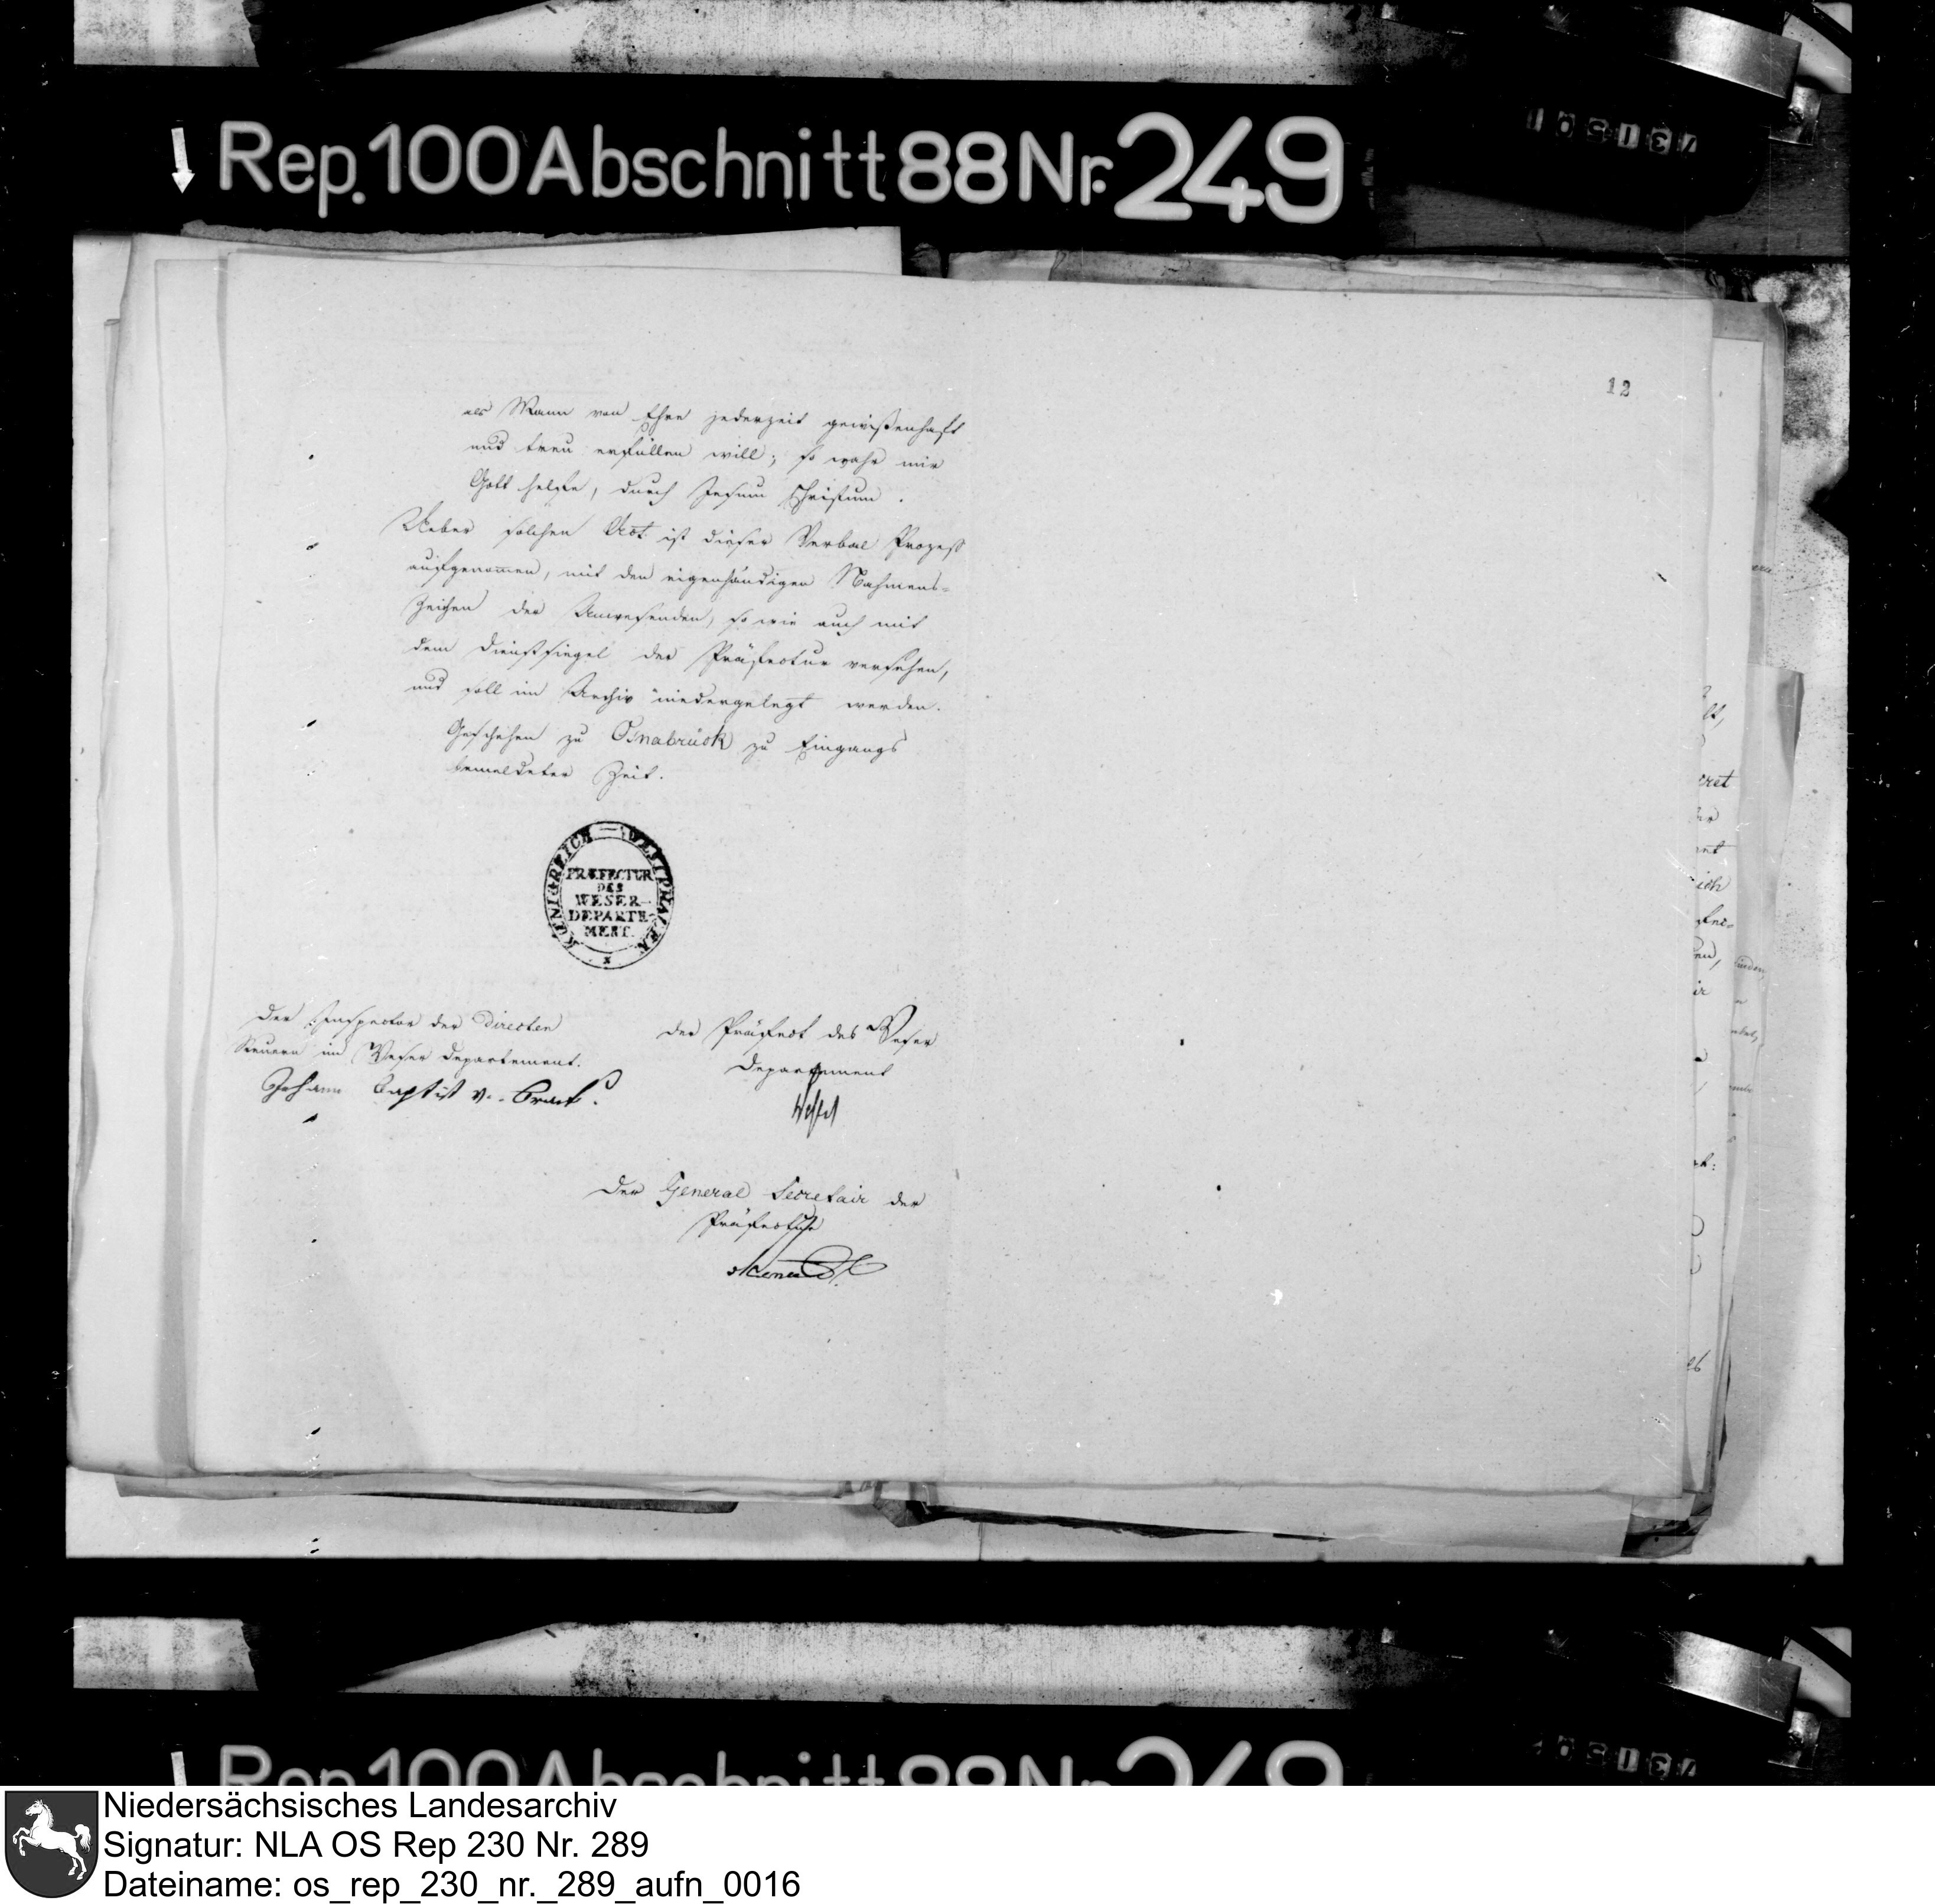 Rep. 100 Abschnitt 88 Nr. 249
12
als Mann von Ehre jederzeit gewißenhaft
und treu erfüllen will; so wahr mir
Gott helfe, durch Jesum Christum.
Ueber solchen Act ist dieser Verbal Prozeß
aufgenommen, mit den eigenhändigen Nahmens-
Zeichen der Anwesenden, so wie auch mit
dem Dienstsiegel der Präfectur versehen,
und soll im Archiv niedergelegt werden.
Geschehen zu Osnabrück zu Eingangs
bemeldeter Zeit.
KÖNIGREICH — WESTPHALEN
PRÆFECTUR
DES
WESER-
DEPARTE-
MENT.
Der Inspector der directen
Steuern im Weser Departement.
Johann Baptist v.
Der Präfect des Weser
Departement
Der General Secretair der
Präfectur
Rep. 100 Abschnitt 88 Nr. 249
Niedersächsisches Landesarchiv
Signatur: NLA OS Rep 230 Nr. 289
Dateiname: os_rep_230_nr._289_aufn_0016